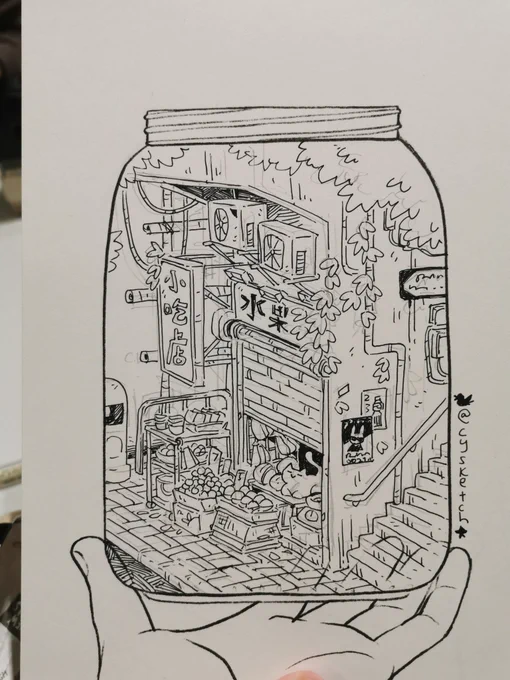 小吃店
水果
@cysketch